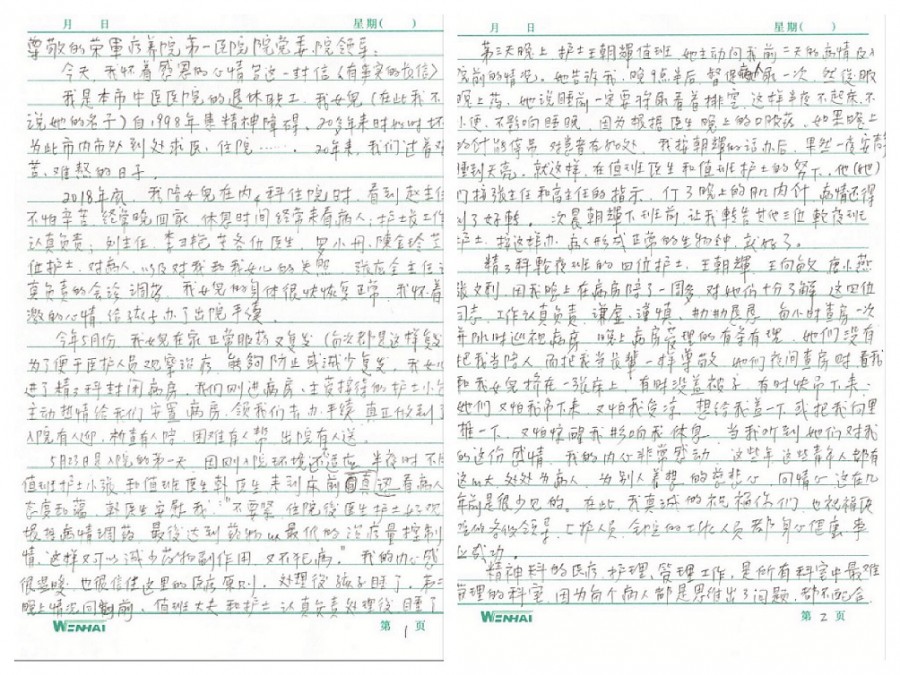 月 日 星期( )
尊敬的荣軍疗养院第一医院院党委、院领导:
今天,我怀着感恩的心情写这一封信(有事实的
我是本市中医医院的退休职工,我女儿(在此我不
说她的名子)自1998年患精神障碍,20多年来时好时坏
为此市内市外到处求医,住院……。20年来,我们过着
苦,难熬的日子。
2018年底,我陪女儿在内4科住院时,看到赵主任
不怕辛苦,经常晚回家,休息时间经常来看病人;护士
认真负责;
位护士,对病人,以及对我和我女儿的关照,
真负责的会诊调药,我女儿的身体很快恢复正常,我怀着
激的心情给孩子办了出院手续。
今年5月份,我女儿在家正常服药又复发(每次都是这样复发
为了便于医护人员观察治疗,能夠防止或减少复发,我女儿
进了精3科封闭病房,我们刚进病房,主要接待的护士小
主动热情给我们安置病房,领我们去办手续,真正做到了
入院有人迎,检查有人陪,困难有人帮,出院有人送。
5月23日是入院的第一天,因刚入院环境还不适应,半夜时不
值班护士小张和值班医生韩医生来到床前 看病人
态度和蔼,韩医生安慰我:“不要紧,住院後医生护士
根据病情调药,最後达到药物以最低的治疗量控制
情,这样又可以减少药物副作用,又不犯病。”我的内心感
很温暖,也很信任这里的医疗原则。处理後孩子睡了,第二
晚上情况同前,值班大夫和护士认真负责处理後睡了
WENHAI 第 1 页
月 日 星期( )
第三天晚上,护士王朝輝值班,她主动问我前二天的病情及入
院前的情况。她告诉我,晚9点半后督促病人尿一次,然後服
晚上药,她说睡前一定要将尿看着排空,这样半夜不起床,不
小便,不影响睡眠,因为根据医生晚上的口服药,如果晚上
的针能停吊,对患者有好处,我按朝輝的话办后,果然一夜安静
睡到天亮。就这样,在值班医生和值班护士的努力下,他(她)
们按张主任和高主任的指示,停了晚上的肌肉针,病情还得
到了好转。一次晨朝輝下班前,让我转告其他三位較夜班
护士,按这样办,病人形成正常的生物钟,就好了。
精3科較夜班的四位护士,王朝輝、王向敏、唐小燕、
张文利,因我晚上在病房陪了一周多,对她们十分了解,这四位
同志,工作认真负责,谦虚、谨慎、 每小时查房一次
并随时巡视病房,晚上病房管理的有条有理,她们没有
把我当陪人,而把我当長輩一样尊敬,她们夜间查房时看我
和我女儿挤在一张床上,有时没盖被子,有时快吊下来,
她们又怕我吊下来,又怕我受凉,想给我盖一下或把我向里
推一下,又怕惊醒我影响我休息。当我听到她们对我
的这份感情,我的内心非常感动,这些年这些青年人都有
这么大处处为病人、为别人着想的慈悲心、同情心,这在几
年前是很少见的。在此,我真诚的祝福你们,也祝福医
院的各级领导、工作人员,全院的工作人员都身心健康,事
业成功。
精神科的医疗、护理、管理工作,是所有科室中最难
管理的科室,因为每个病人都是思维出了问题,都不配合
WENHAI 第 2 页